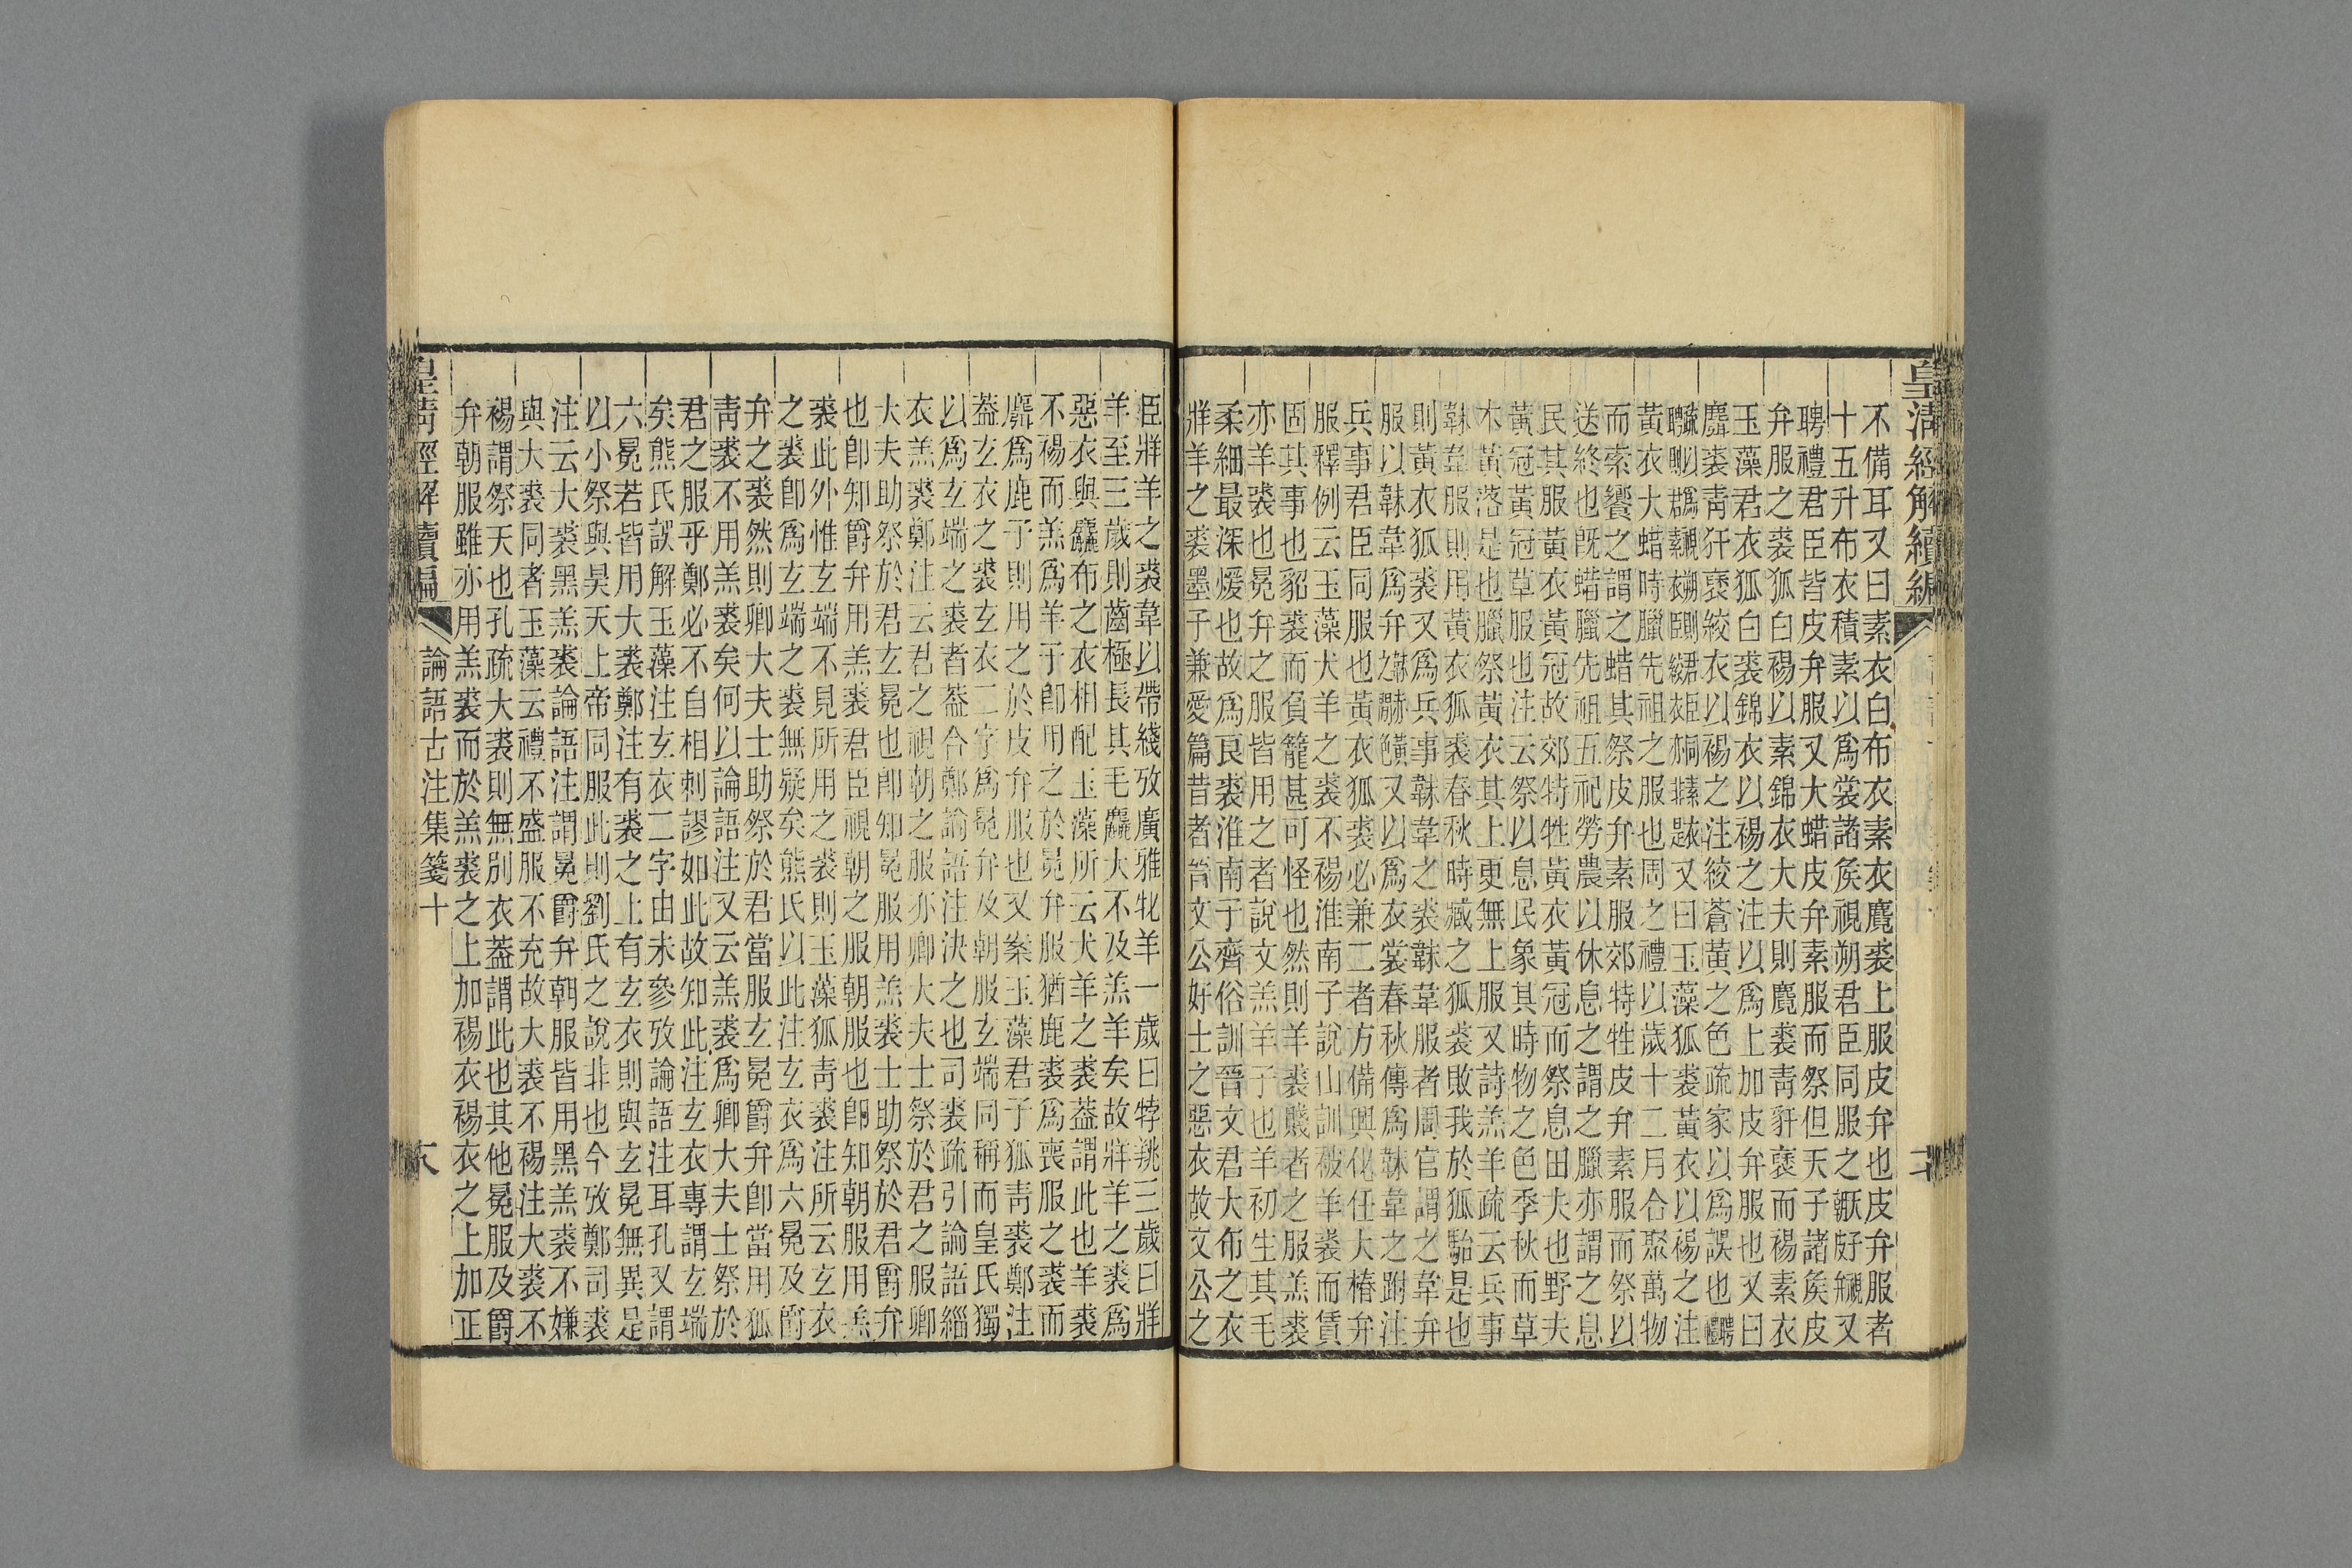 皇清經解續編
不備耳又曰素衣白布衣素衣麑裘上服皮弁也皮弁服者
十五升布衣積素以爲裳諸矦視朔君臣同服之又
聘禮君臣皆皮弁服又大蜡皮弁素服而祭但天子諸矦皮
弁服之裘狐白裼以素錦衣大夫則麑裘青豻褎而裼素衣
玉藻君衣狐白裘錦衣以裼之注以爲上加皮弁服也又曰
麛裘青豻褎絞衣以裼之注絞蒼黃之色疏家以爲誤也聘禮
又曰玉藻狐裘黃衣以裼之注
黃衣大蜡時臘先祖之服也周之禮以歲十二月合聚萬物
而索饗之謂之蜡其祭皮弁素服郊特牲皮弁素服而祭以
送終也旣蜡臘先祖五祀勞農以休息之謂之臘亦謂之息
民其服黃衣黃冠故郊特牲黃衣黃冠而祭息田夫也野夫
黃冠黃冠草服也注云祭以息民象其時物之色季秋而草
木黃落是也臘祭黃衣其上更無上服又詩羔羊疏云兵事
韎韋服則用黃衣狐裘春秋時臧之狐裘敗我於狐駘是也
則黃衣狐裘又爲兵事韎韋之裘韎韋服者周官謂之韋弁
服以韎韋爲弁又以爲衣裳春秋傳爲韎韋之跗注
兵事君臣同服也黃衣狐裘必兼二者方備興化任大椿弁
服釋例云玉藻犬羊之裘不裼淮南子說山訓被羊裘而賃
固其事也貂裘而負籠甚可怪也然則羊裘賤者之服羔裘
亦羊裘也冕弁之服皆用之者說文羔羊子也羊初生其毛
柔細最深煖也故爲良裘淮南子齊俗訓晉文君大布之衣
牂羊之裘墨子兼愛篇昔者晉文公好士之惡衣故文公之
臣牂羊之裘韋以帶綫攷廣雅牝羊一歲曰牸䍮三歲曰牂
羊至三歲則齒極長其毛麤大不及羔羊矣故牂羊之裘爲
惡衣與麤布之衣相配玉藻所云犬羊之裘蓋謂此也羊裘
不裼而羔爲羊子卽用之於冕弁服猶鹿裘爲喪服之裘而
麛爲鹿子則用之於皮弁服也又案玉藻君子狐青裘鄭注
蓋玄衣之裘玄衣二字爲冕弁及朝服玄端同稱而皇氏獨
以爲玄端之裘者蓋合鄭論語注決之也司裘疏引論語緇
衣羔裘鄭注云君之視朝之服亦卿大夫士祭於君之服卿
大夫助祭於君玄冕也卽知冕服用羔裘士助祭於君爵弁
也卽知爵弁用羔裘君臣視朝之服朝服也卽知朝服用羔
裘此外惟玄端不見所用之裘則玉藻狐青裘注所云玄衣
之裘卽爲玄端之裘無疑矣熊氏以此注玄衣爲六冕及爵
弁之裘然則卿大夫士助祭於君當服玄冕爵弁卽當用狐
青裘不用羔裘矣何以論語注又云羔裘爲卿大夫士祭於
君之服乎鄭必不自相刺謬如此故知此注玄衣專謂玄端
矣熊氏誤解玉藻注玄衣二字由未參攷論語注耳孔又謂
六冕若皆用大裘鄭注有裘之上有玄衣則與玄冕無異是
以小祭與昊天上帝同服此則劉氏之說非也今攷鄭司裘
注云大裘黑羔裘論語注謂冕爵弁朝服皆用黑羔裘不嫌
與大裘同者玉藻云禮不盛服不充故大裘不裼注大裘不
裼謂祭天也孔疏大裘則無別衣蓋謂此也其他冕服及爵
弁朝服雖亦用羔裘而於羔裘之上加裼衣裼衣之上加正
皇清經解續編
論語古注集箋十